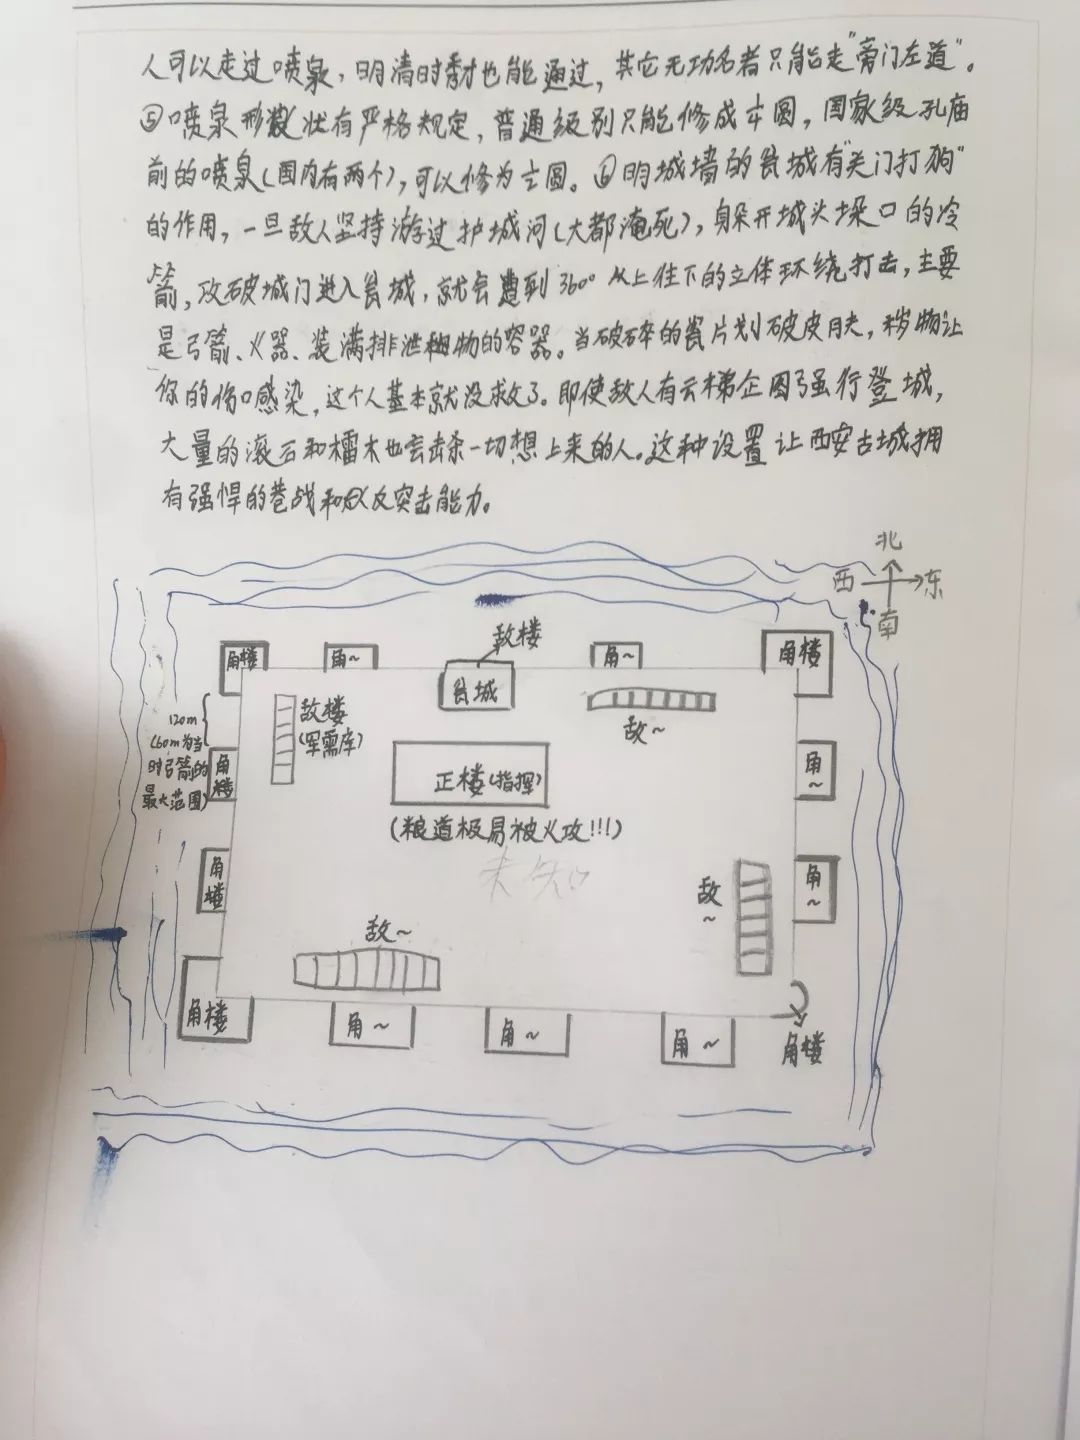 人可以走过喷泉，明清时秀才也能通过，其它无功名者只能走"旁门左道"。
⑤喷泉形状有严格规定，普通级别只能修成半圆，国家级孔庙
前的喷泉（国内有两个），可以修为立圆。⑥明城墙的瓮城有"关门打狗"
的作用，一旦敌人坚持游过护城河（大都淹死），躲开城头垛口的冷
箭，攻破城门进入瓮城，就会遭到360°从上往下的立体环绕打击，主要
是弓箭、火器、装满排泄物的容器。当破碎的瓮片划破皮肤，秽物让
你的伤口感染，这个人基本就没救了。即使敌人有云梯企图强行登城，
大量的滚石和檑木也会击杀一切想上来的人。这种设置让西安古城拥
有强悍的巷战和反突击能力。
北
西 东
南
敌楼
角楼 角~ 瓮城 角~ 角楼
敌楼
(军需库)
敌~
120m
(60m为当
时弓箭的
最大范围)
角楼
正楼(指挥)
角~
(粮道极易被火攻!!!)
未知
角楼
角~
敌~
敌~
角楼 角~ 角~ 角~ 角楼